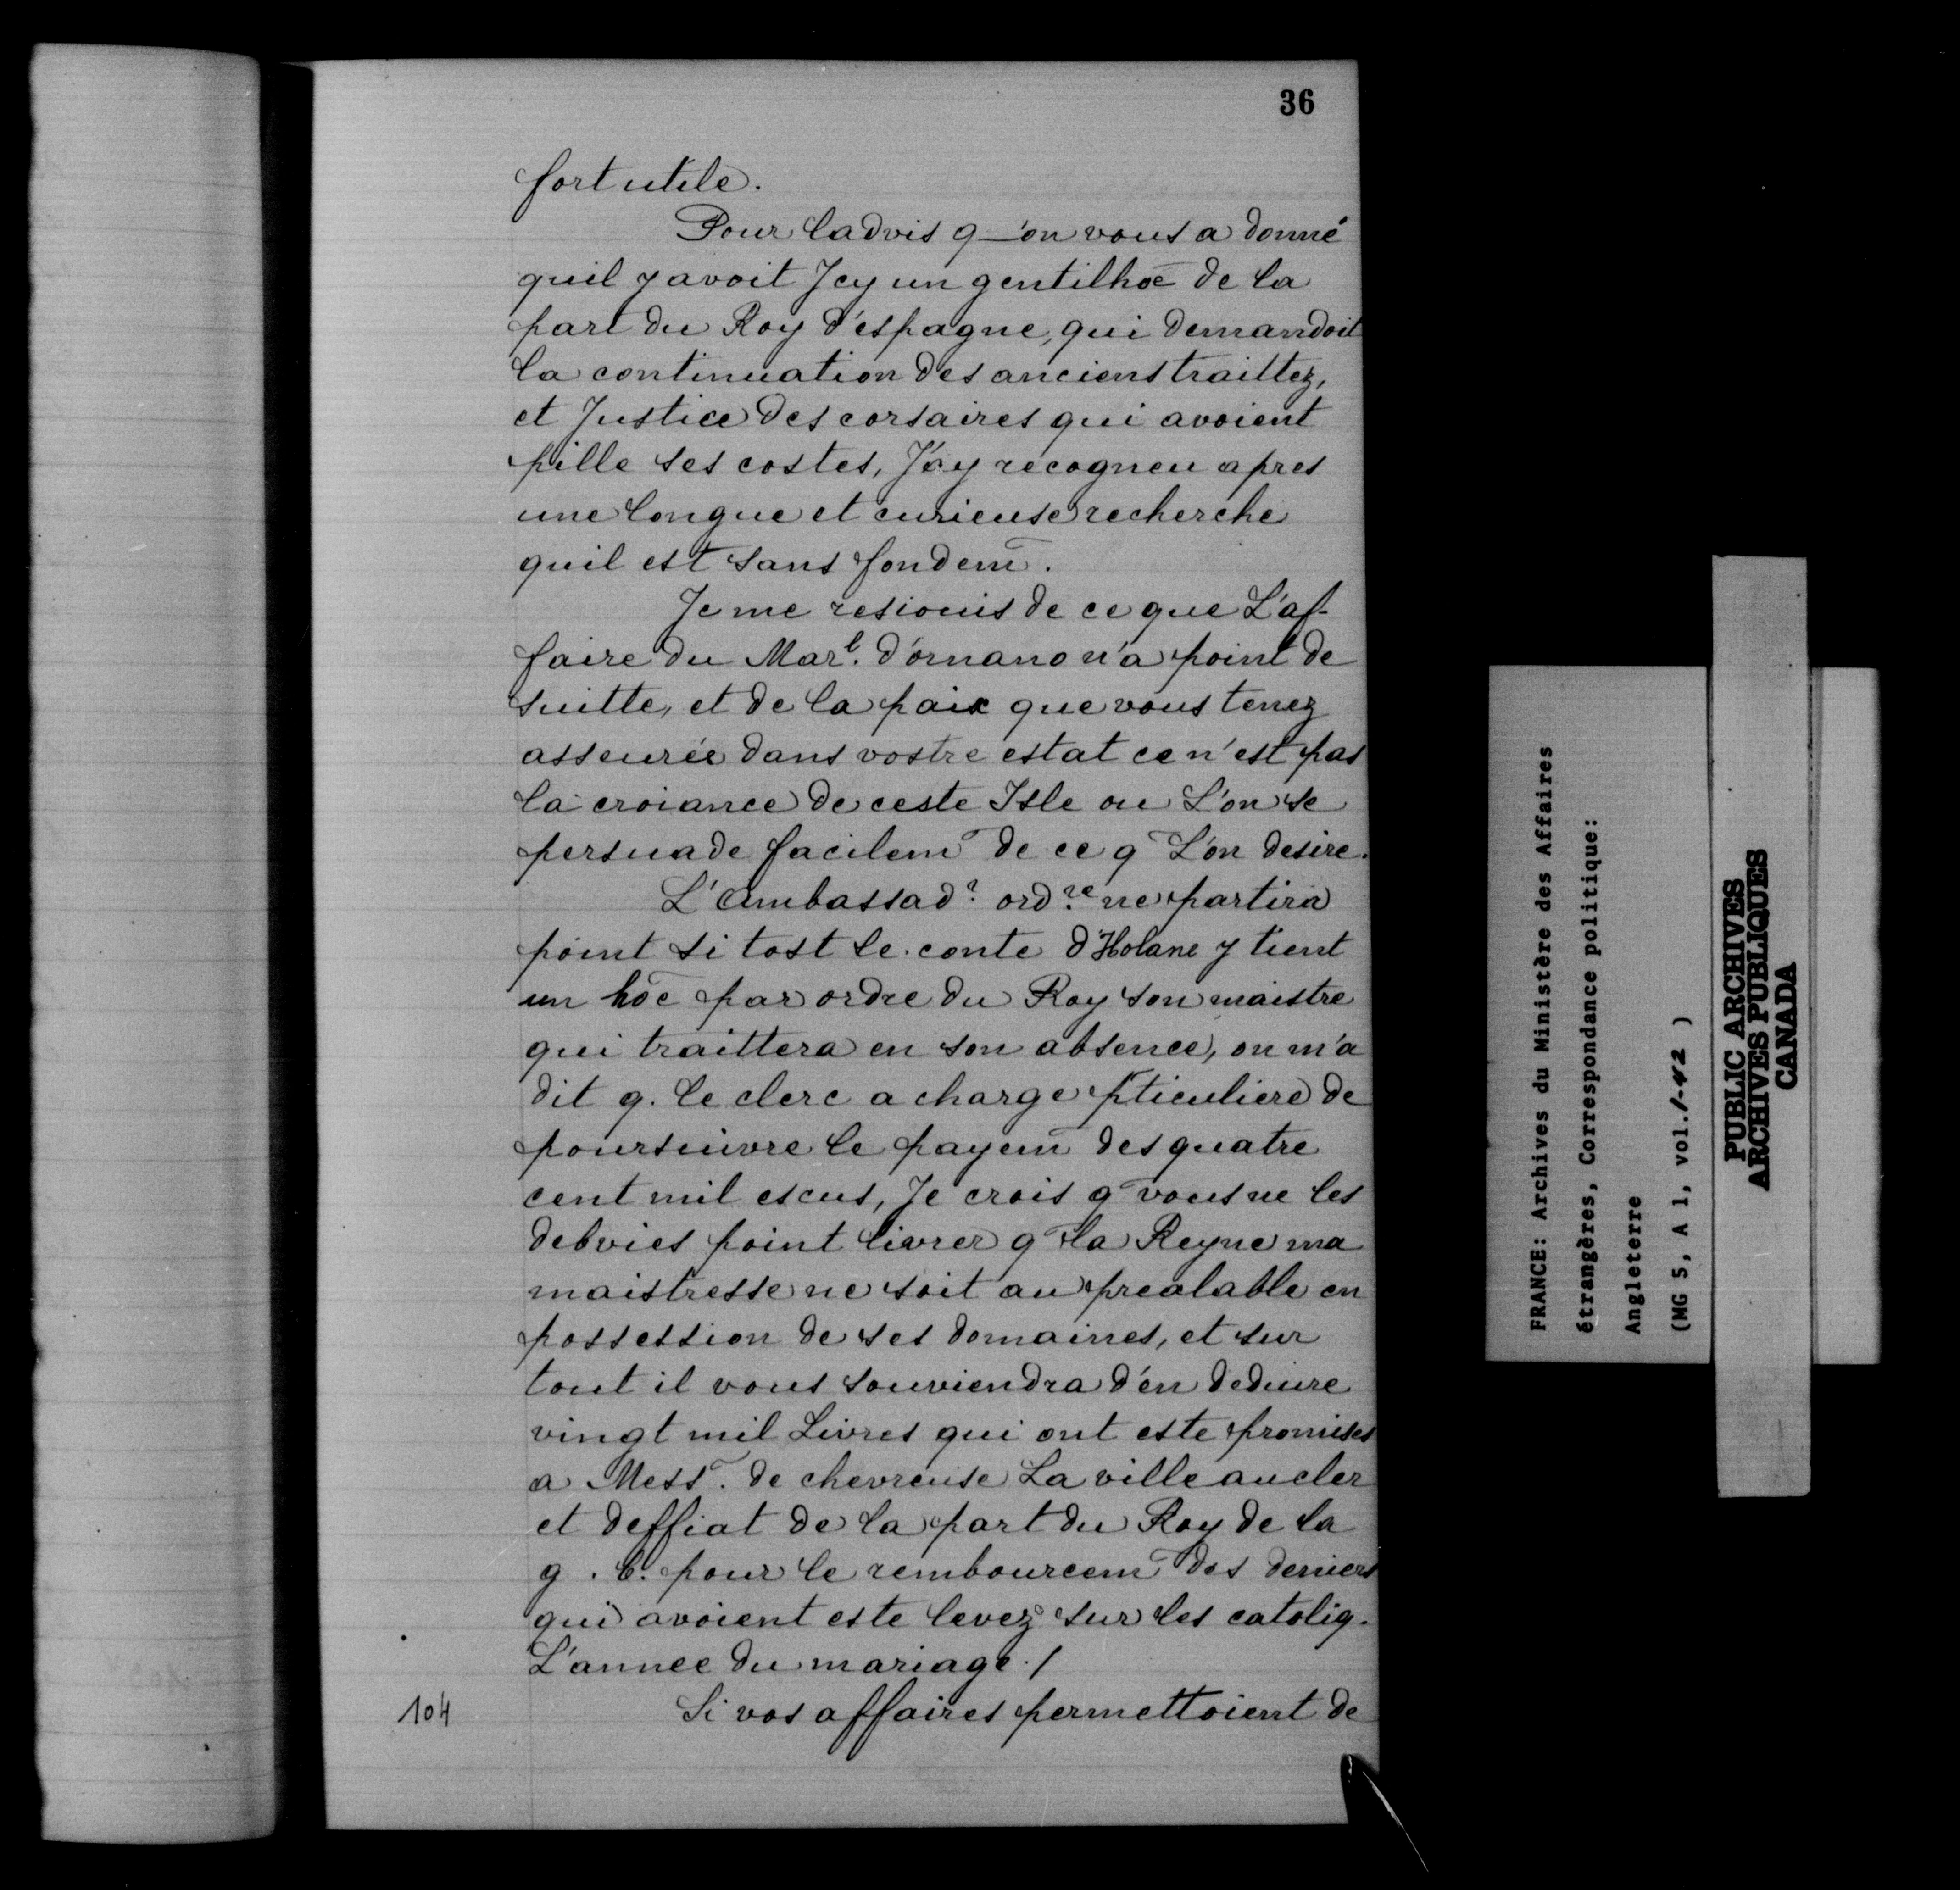 36
fort utile.
Pour ladvis q—'on vous a donné
quil y avoit Jcy un gentilhōe de la
part du Roy d'espagne, qui demandoit
la continuation des anciens traittez,
et Justice des corsaires qui avoient
pille ses costes, J'ay recogneu apres
une longue et curieuse recherche
quil est sans fondem̄.
Je me resiouis de ce que L'af-
faire du Marl. d'ornano n'a point de
suitte, et de la paix que vous tenez
asseurée dans vostre estat ce n'est pas
la croiance de ceste Isle ou L'on se
persuade facilem̄ de ce q̄ L'on desire.
L'Ambassadr. ordre. ne partira
point si tost le conte d'Holane y tient
un hōe par ordre du Roy son maistre
qui traittera en son absence, on m'a
dit q. le clerc a charge pticuliere de
poursuivre le payem̄ des quatre
cent mil escus, Je crois q̄ vous ne les
debvies point livrer q̄ la Reyne ma
maistresse ne soit au prealable en
possession de ses domaines, et sur
tout il vous souviendra d'en deduire
vingt mil Livres qui ont este promises
a Mess̄. de chevreuse La ville aucler
et deffiat de la part du Roy de la
g. b. pour le rembourcem̄ des deniers
qui avoient este levez sur les catoliq.
L'annee du mariage./
104
Si vos affaires permettoient de
FRANCE: Archives du Ministère des Affaires
étrangères, Correspondance politique:
Angleterre
(MG 5, A 1, vol. 1-42 )
PUBLIC ARCHIVES
ARCHIVES PUBLIQUES
CANADA